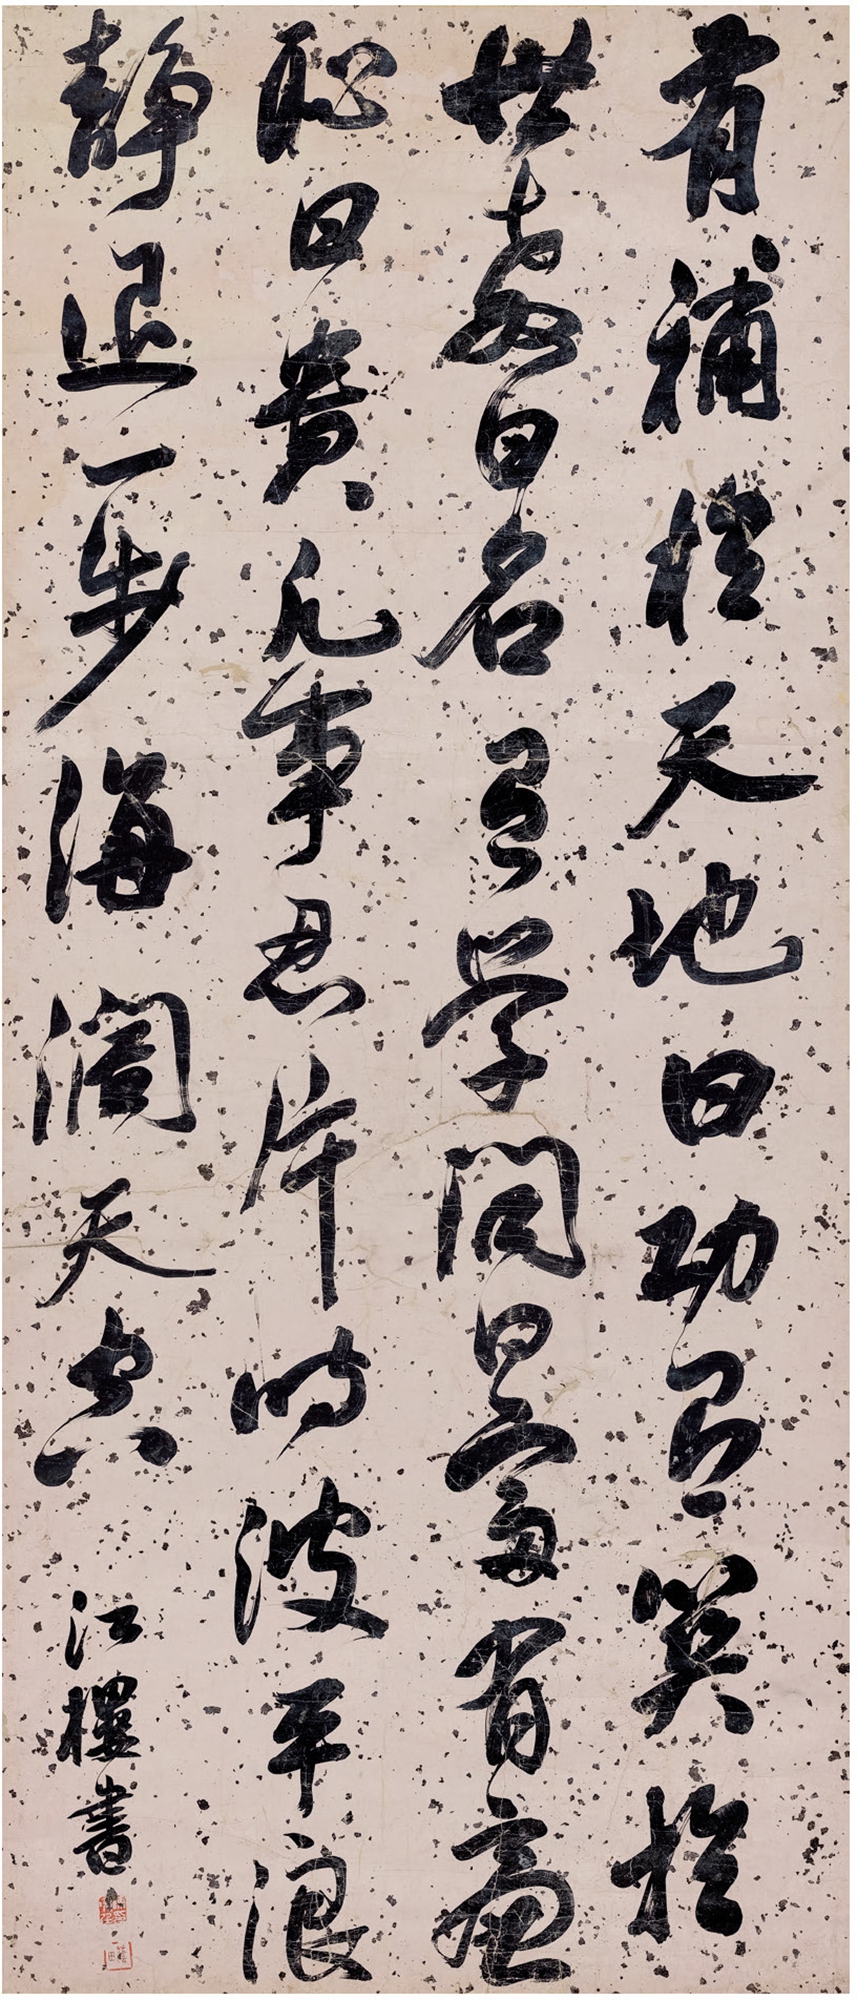 有補於天地曰功有關於
世教曰名有學問曰富有廉
恥曰貴凡事忍片時波平浪
靜退一步海闊天空
江樓書